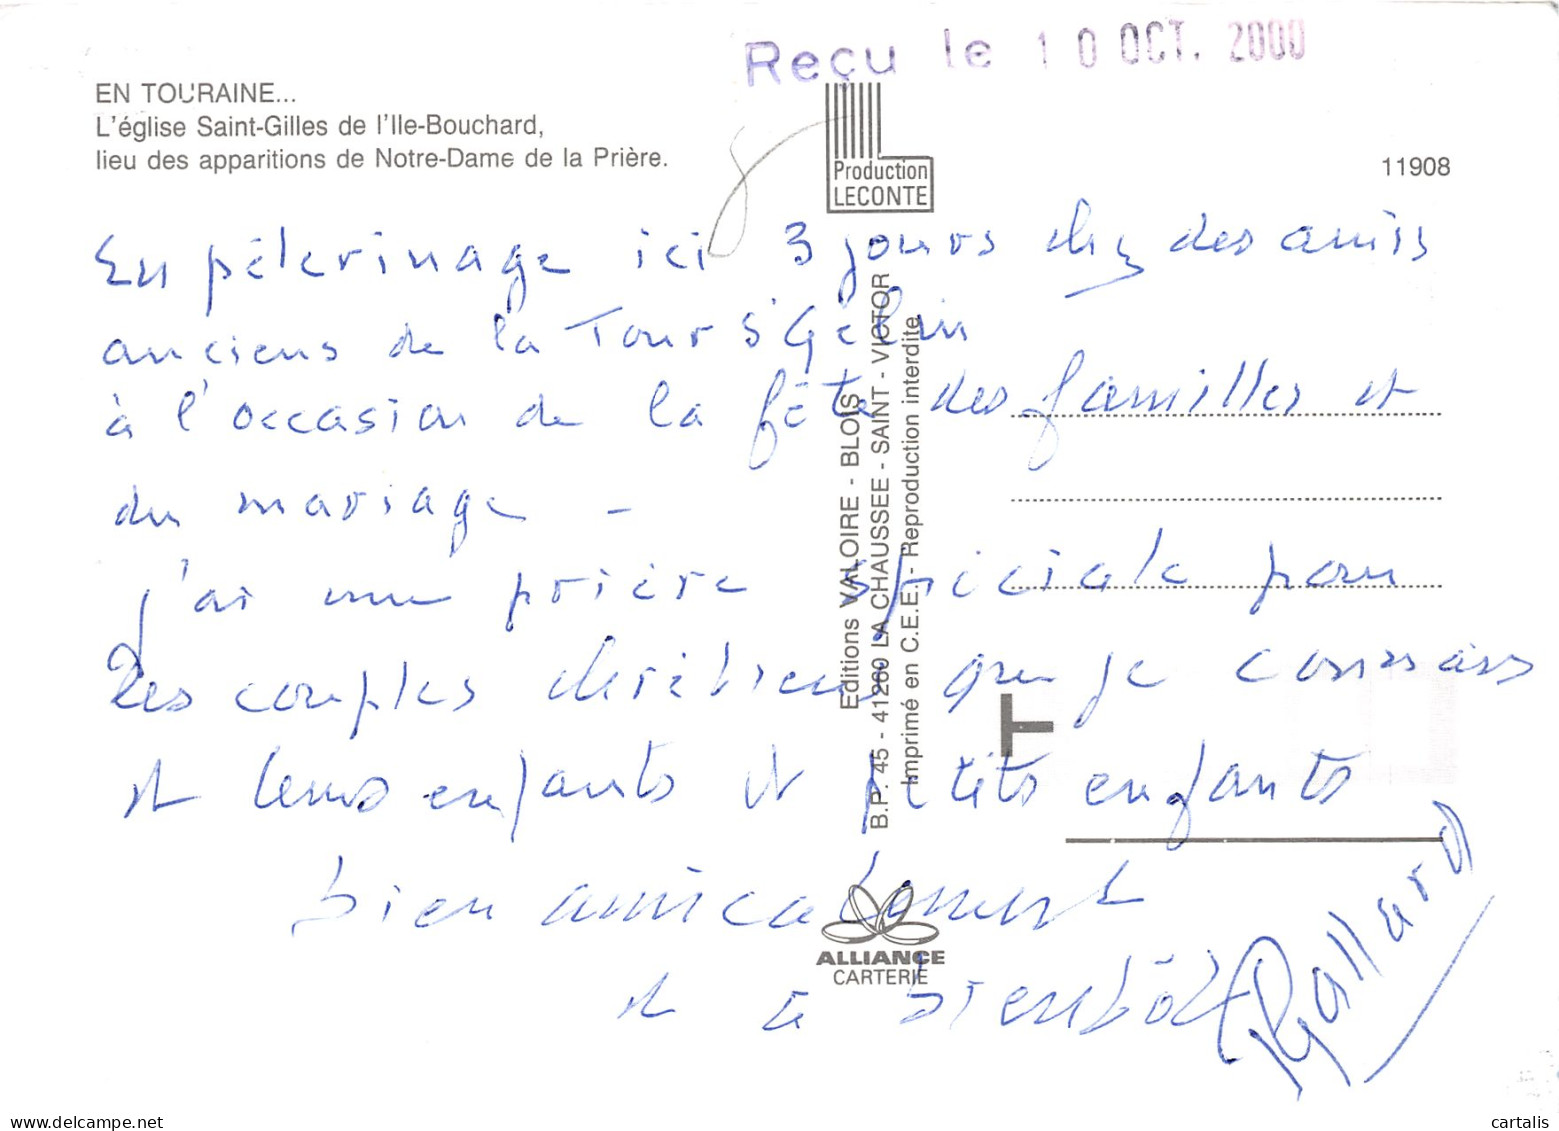 Reçu le 10 OCT. 2000
EN TOURAINE...
L'église Saint-Gilles de l'Ile-Bouchard,
lieu des apparitions de Notre-Dame de la Prière.
Production
LECONTE
11908
En pélerinage ici 3 jours chez des amis
anciens de la Tour St Gélin
à l'occasion de la fête des familles et
du mariage -
j'ai une prière spéciale pour
les couples chrétiens que je connais
et leurs enfants et petits enfants
bien amicalement
et à bientôt
Gallard
Editions VALOIRE - BLOIS
B.P. 45 - 41260 LA CHAUSSEE - SAINT - VICTOR
Imprimé en C.E.E. - Reproduction interdite
T
ALLIANCE
CARTERIE
delcampe.net
cartalis